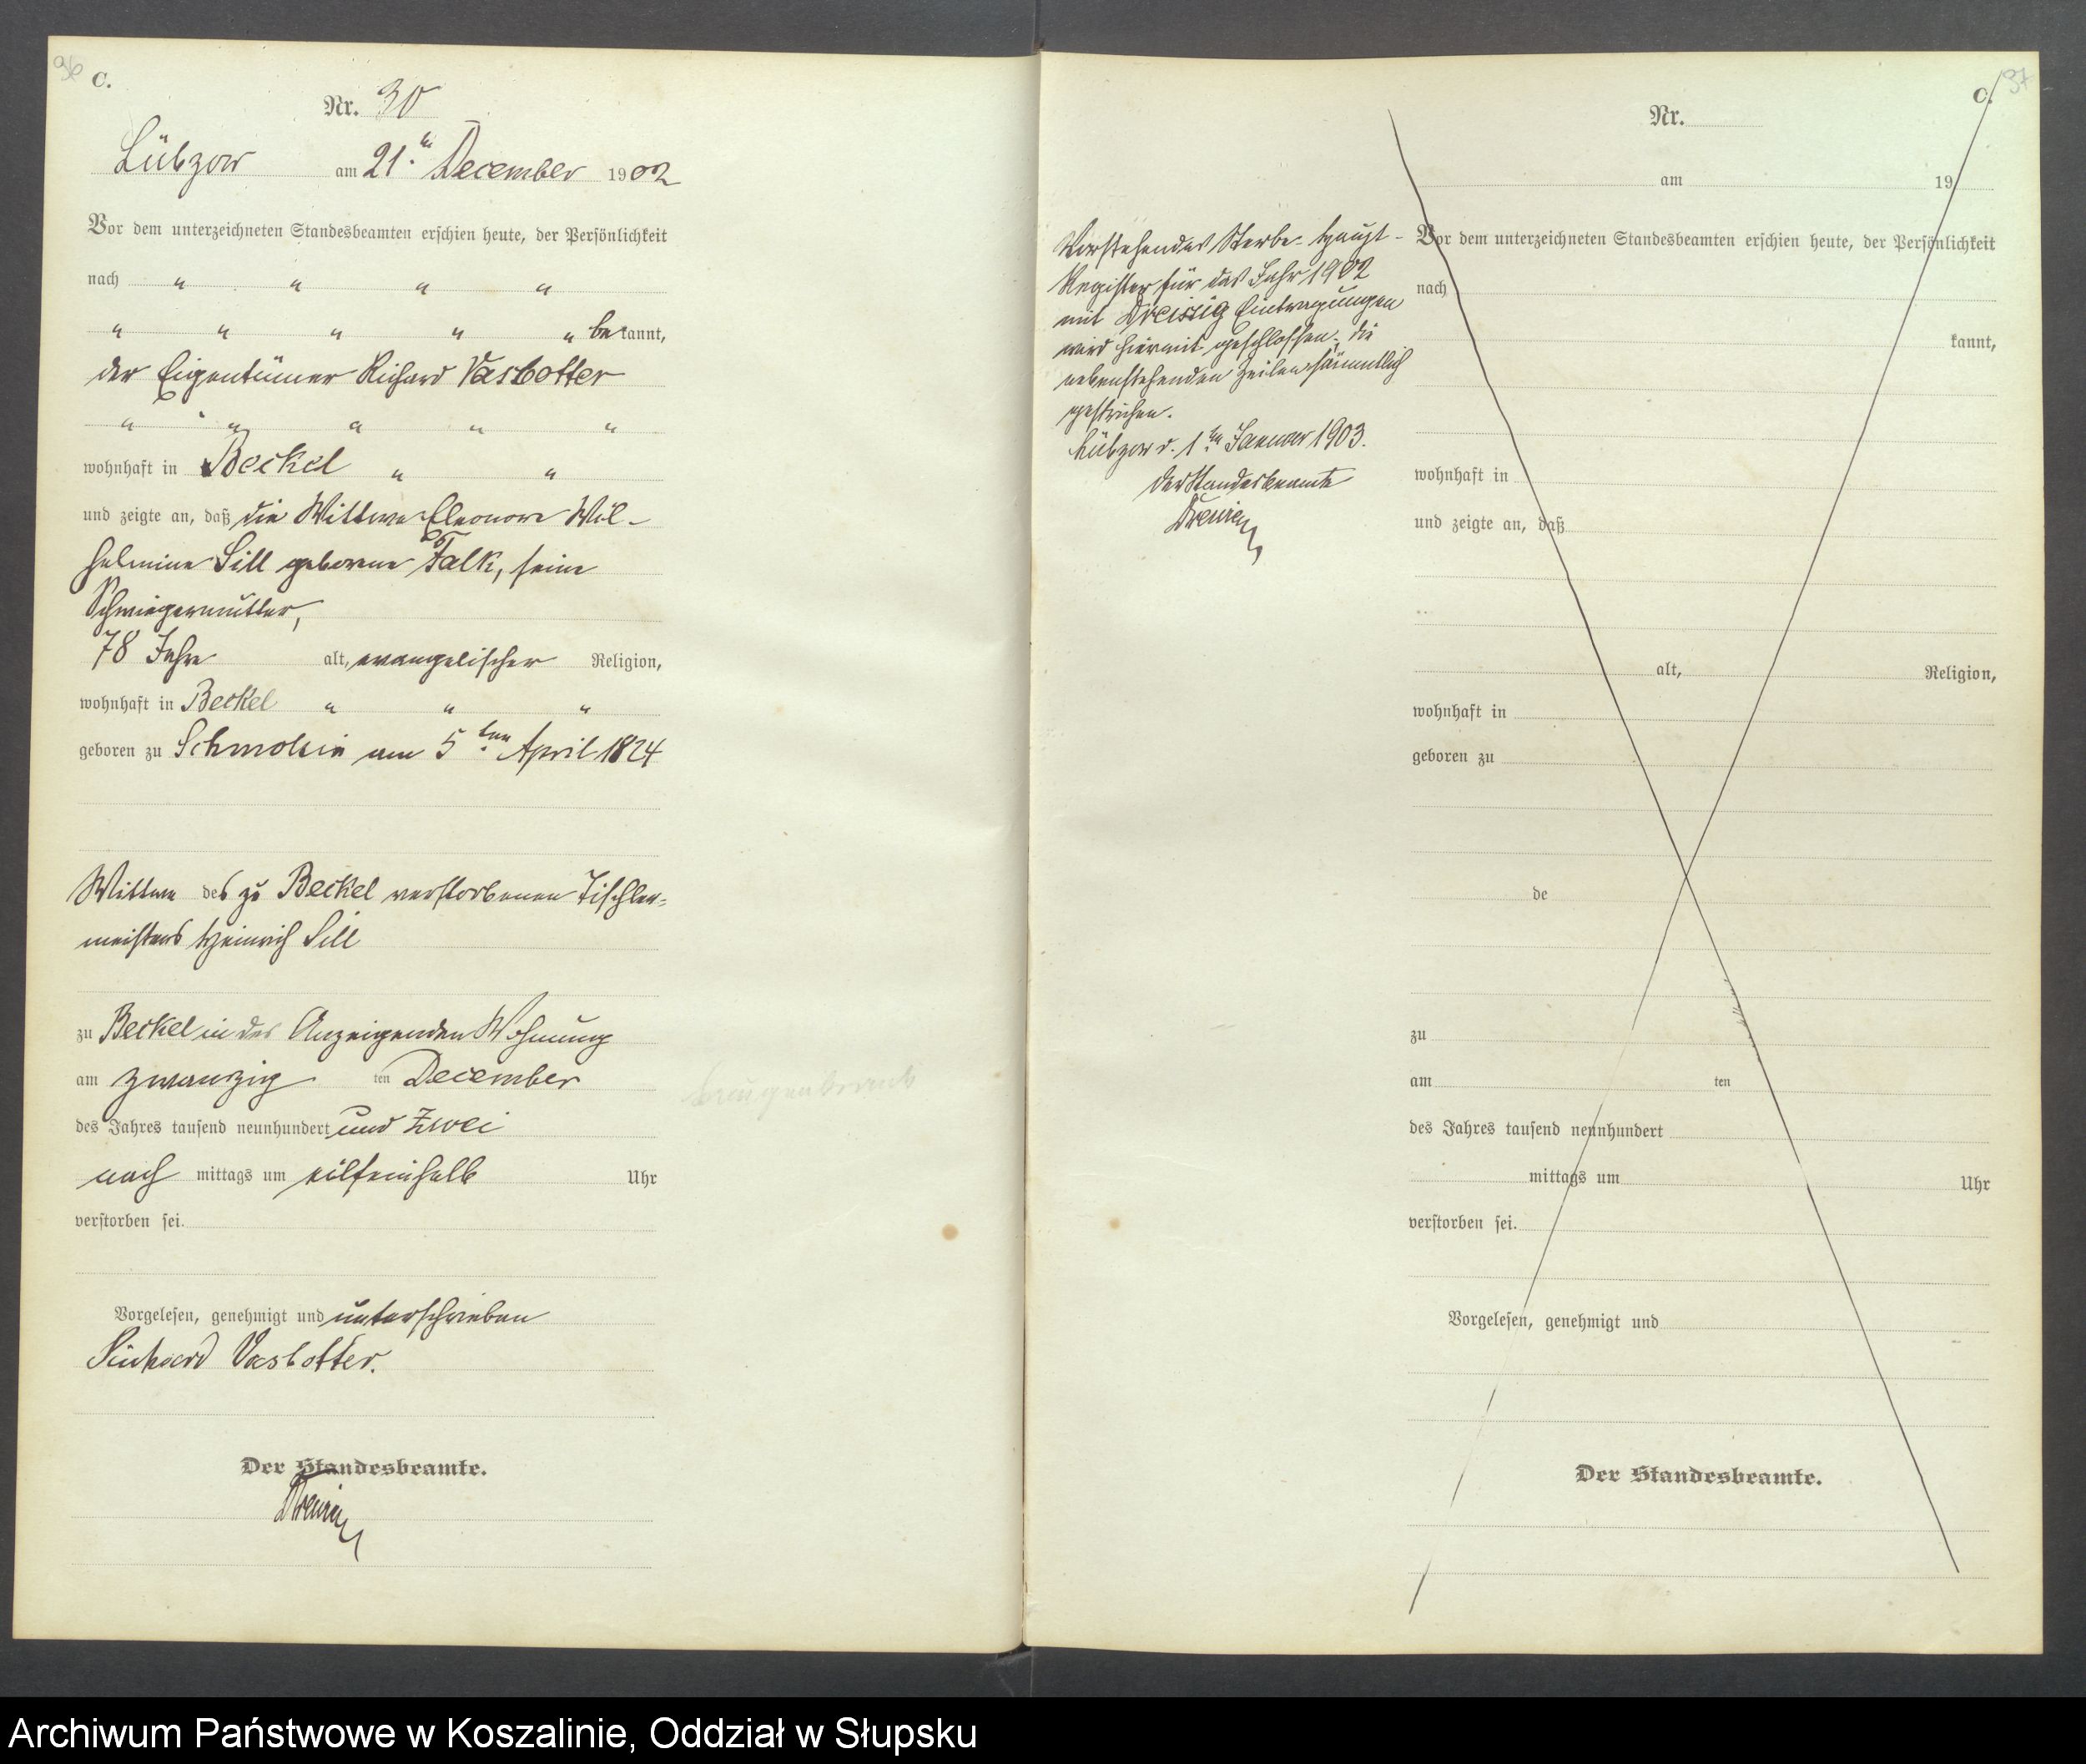 96
C.
Nr. 30
Lübzow am 21. ten December 1902
Vor dem unterzeichneten Standesbeamten erschien heute, der Persönlichkeit
nach " " " "
" " " " " bekannt,
der Eigentümer Richard Vasbotter
" " " " "
wohnhaft in Beckel " "
und zeigte an, daß die Wittwe Eleonore Wil-
helmine Sill geborene Falk, seine
Schwiegermutter,
78 Jahre alt, evangelischer Religion,
wohnhaft in Beckel " " "
geboren zu Schmolsin am 5ten April 1824
Wittwe des zu Beckel verstorbenen Tischler-
meisters Heinrich Sill
zu Beckel in des Anzeigenden Wohnung
am zwanzig ten December
des Jahres tausend neunhundert und zwei
nach mittags um eilfeinhalb Uhr
verstorben sei.
Vorgelesen, genehmigt und unterschrieben
Richard Vasbotter.
Der Standesbeamte.
97
C.
Nr.
am 19
Vorstehendes Sterbe-Haupt-
Register für das Jahr 1902
mit Dreissig Eintragungen
wird hiermit geschlossen, die
nebenstehenden Zeilen sämmtlich
gestrichen.
Lübzow d. 1ten Januar 1903.
Der Standesbeamte
Vor dem unterzeichneten Standesbeamten erschien heute, der Persönlichkeit
nach
kannt,
wohnhaft in
und zeigte an, daß
alt, Religion,
wohnhaft in
geboren zu
de
zu
am ten
des Jahres tausend neunhundert
mittags um Uhr
verstorben sei.
Vorgelesen, genehmigt und
Der Standesbeamte.
Archiwum Państwowe w Koszalinie, Oddział w Słupsku